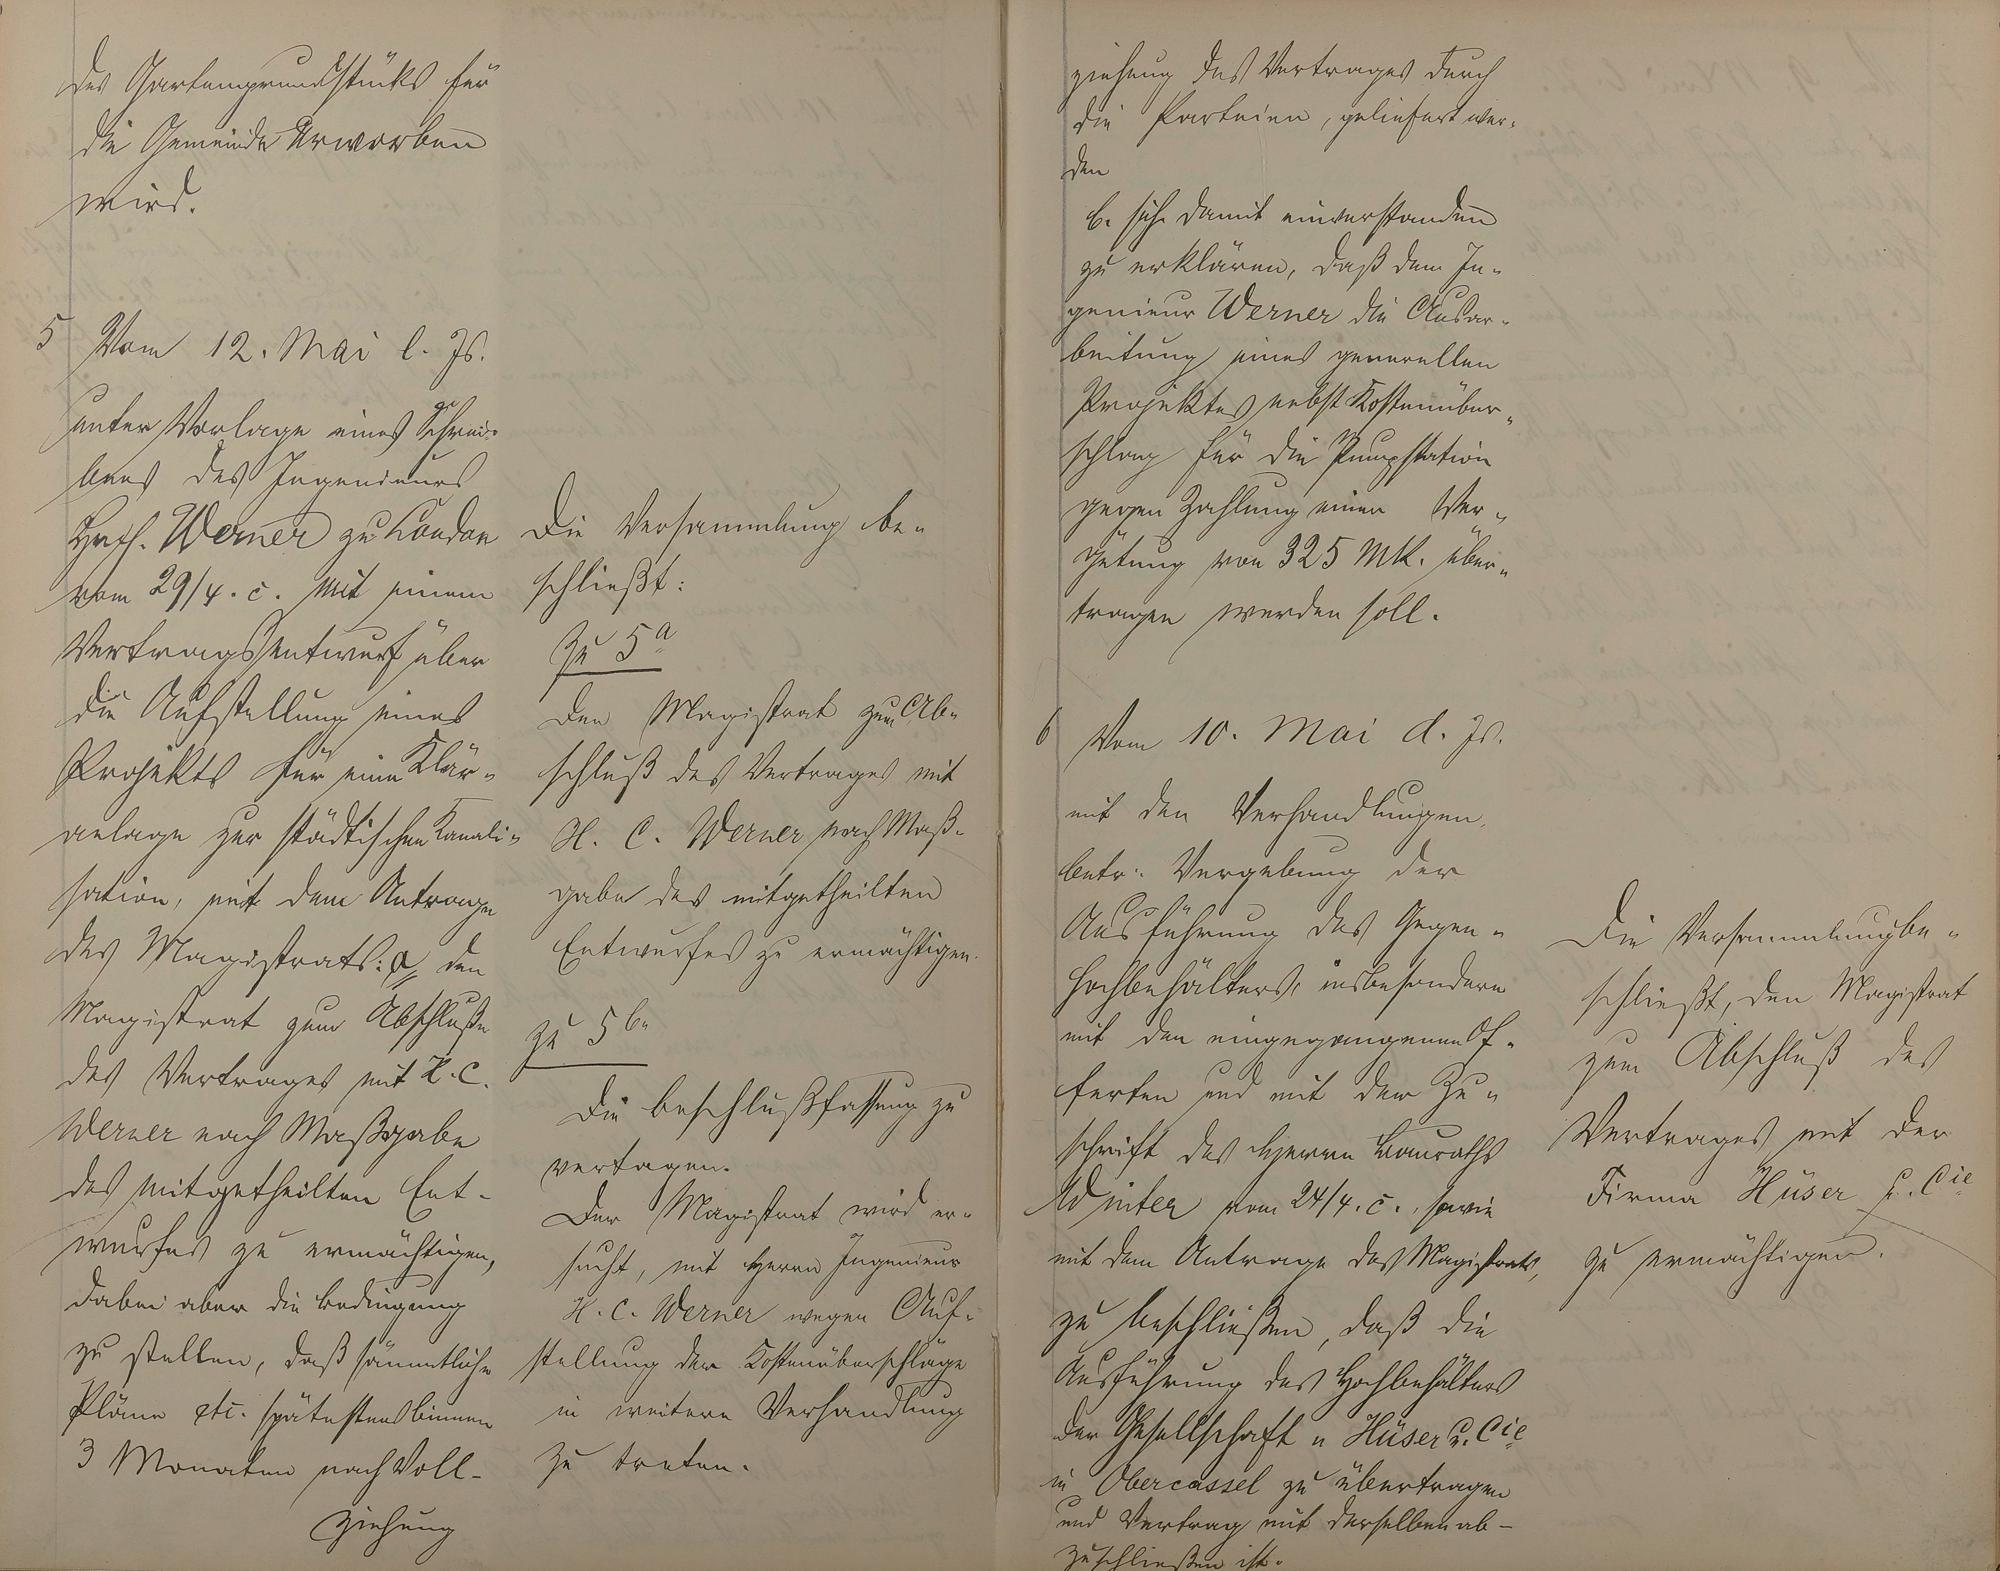 des Gartengrundstücks für
die Gemeinde erworben
wird.
5 Vom 12. Mai l. Js.
unter Vorlage eines Schrei-
bens des Ingenieurs
Werner zu London
vom 29/4. c. mit einem
Vertragsentwurf über
die Aufstellung eines
Projekts für eine Klär-
anlage zur städtischen Kanali-
sation, mit dem Antrage
des Magistrats: a, den
Magistrat zum Abschluße
des Vertrages mit H. C.
Werner nach Maßgabe
des mitgetheilten Ent-
wurfes zu ermächtigen,
dabei aber die Bedingung
zu stellen, daß sämmtliche
Pläne etc. spätestens binnen
3 Monaten nach Voll-
ziehung
Die Versammlung be-
schließt:
Zu 5a
den Magistrat zum Ab-
schluß des Vertrages mit
H. C. Werner nach Maß-
gabe des mitgetheilten
Entwurfes zu ermächtigen.
zu 5b.
die Beschlußfassung zu
vertagen.
Der Magistrat wird er-
sucht, mit Herrn Ingenieur
H. C. Werner wegen Auf-
stellung der Kostenüberschläge
in weitere Verhandlung
zu treten.
ziehung des Vertrages durch
die Parteien, geliefert wer-
den
b. sich damit einverstanden
zu erklären, daß dem In-
genieur Werner die Ausar-
beitung eines generellen
Projektes nebst Kostenüber-
schlag für die Pumpstation
gegen Zahlung einer Ver-
gütung von 325 Mk. über-
tragen werden soll.
6 Vom 10. Mai d. Js.
mit den Verhandlungen,
betr. Vergebung der
Ausführung des Gegen-
hochbehälters, insbesondere
mit den eingegangenen Of-
ferten und mit der Zu-
schrift des Herrn Bauraths
Winter vom 24/4. c., sowie
mit dem Antrage des Magistrats,
zu beschließen, daß die
Ausführung des Hochbehälters
der Gesellschaft Hüser u. Cie
in Obercassel zu übertragen
und Vertrag mit derselben ab-
zuschließen ist.
Die Versammlung be-
schließt, den Magistrat
zum Abschluß des
Vertrages mit der
Firma Hüser u. Cie
zu ermächtigen.